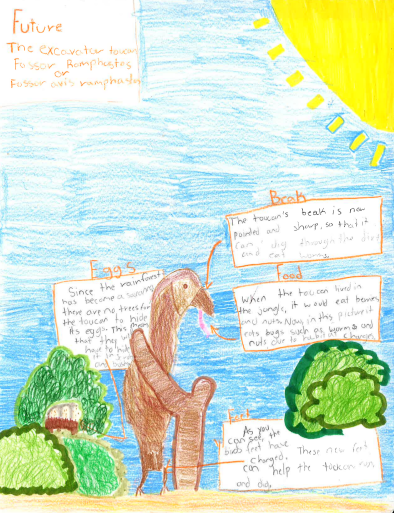 Future
The excavater toucan
Fossor Ramphastos
or
Fossor avis ramphastos
Beak
The toucan's beak is now
pointed and sharp, so that it
can dig through the dirt
and eat worms
Eggs
Since the rainforest
has become a savanna
there are no trees for
the toucan to hide
its eggs. This means
that they
have to
Food
When the toucan lived in
the jungle, it would eat berries
and nuts. Now, in this picture it
eats bugs such as worms and
nuts due to habitat changes.
Feet
As you
can see, the
birds feet have
changed. These new feet
can help the toucan run
and dig.